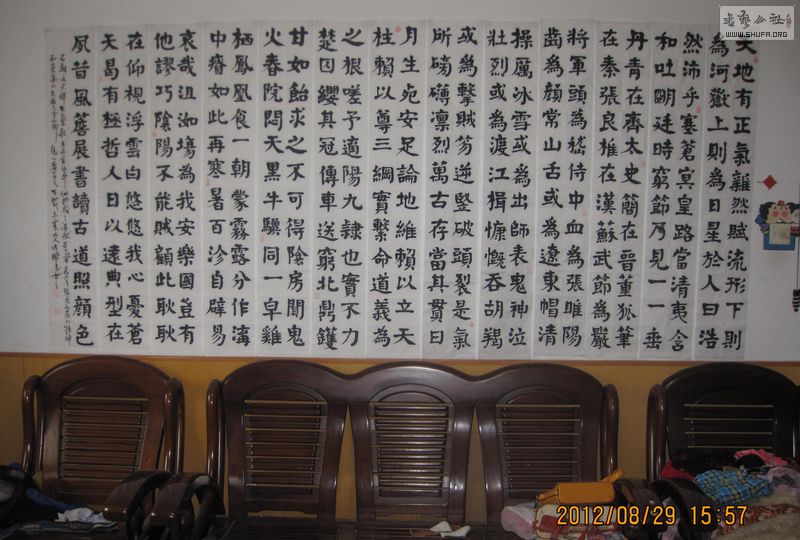 天地有正氣雜然賦流形下則
為河嶽上則為日星於人曰浩
然沛乎塞蒼冥皇路當清夷含
和吐明廷時窮節乃見一一垂
丹青在齊太史簡在晉董狐筆
在秦張良椎在漢蘇武節為嚴
將軍頭為嵇侍中血為張睢陽
齒為顏常山舌或為遼東帽清
操厲冰雪或為出師表鬼神泣
壯烈或為渡江楫慷慨吞胡羯
或為擊賊笏逆豎破頭裂是氣
所磅礡凜烈萬古存當其貫日
月生死安足論地維賴以立天
柱賴以尊三綱實繫命道義為
之根嗟予遘陽九隸也實不力
楚囚纓其冠傳車送窮北鼎鑊
甘如飴求之不可得陰房闃鬼
火春院閟天黑牛驥同一皁雞
棲鳳凰食一朝蒙霧露分作溝
中瘠如此再寒暑百沴自辟易
哀哉沮洳場為我安樂國豈有
他謬巧陰陽不能賊顧此耿耿
在仰視浮雲白悠悠我心憂蒼
天曷有極哲人日以遠典型在
夙昔風簷展書讀古道照顏色
書藝公社
WWW.SHUFA.ORG
2012/08/29 15:57